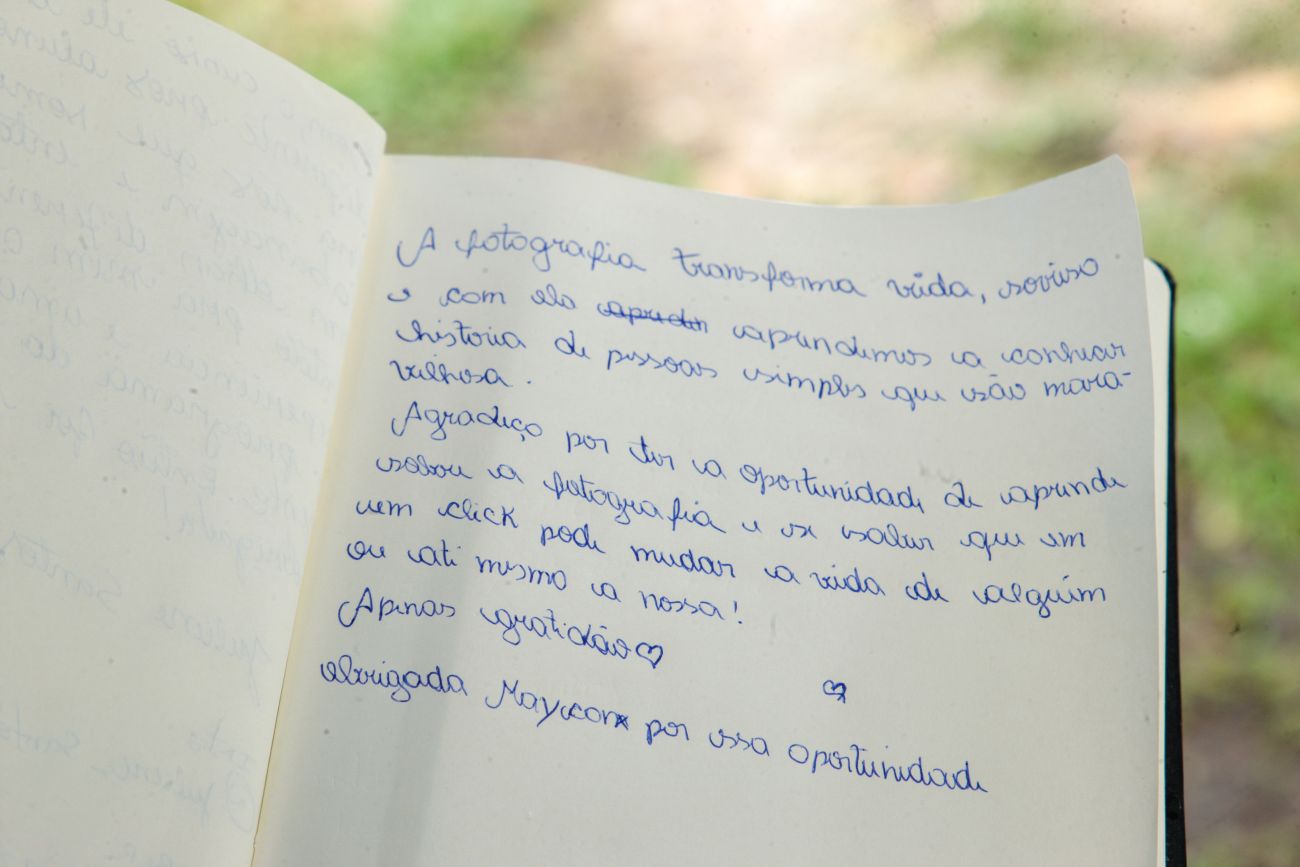 A fotografia transforma vida, soriso
e com ela aprender aprendemos a conhecer
história de pessoas simples que são mara-
vilhosa.
Agradeço por ter a oportunidade de aprende
sobre a fotografia e se saber que em
um click pode mudar a vida de alguém
ou até mesmo a nossa!
Apenas gratidão♡
♡
obrigada Maycon por essa oportunidade